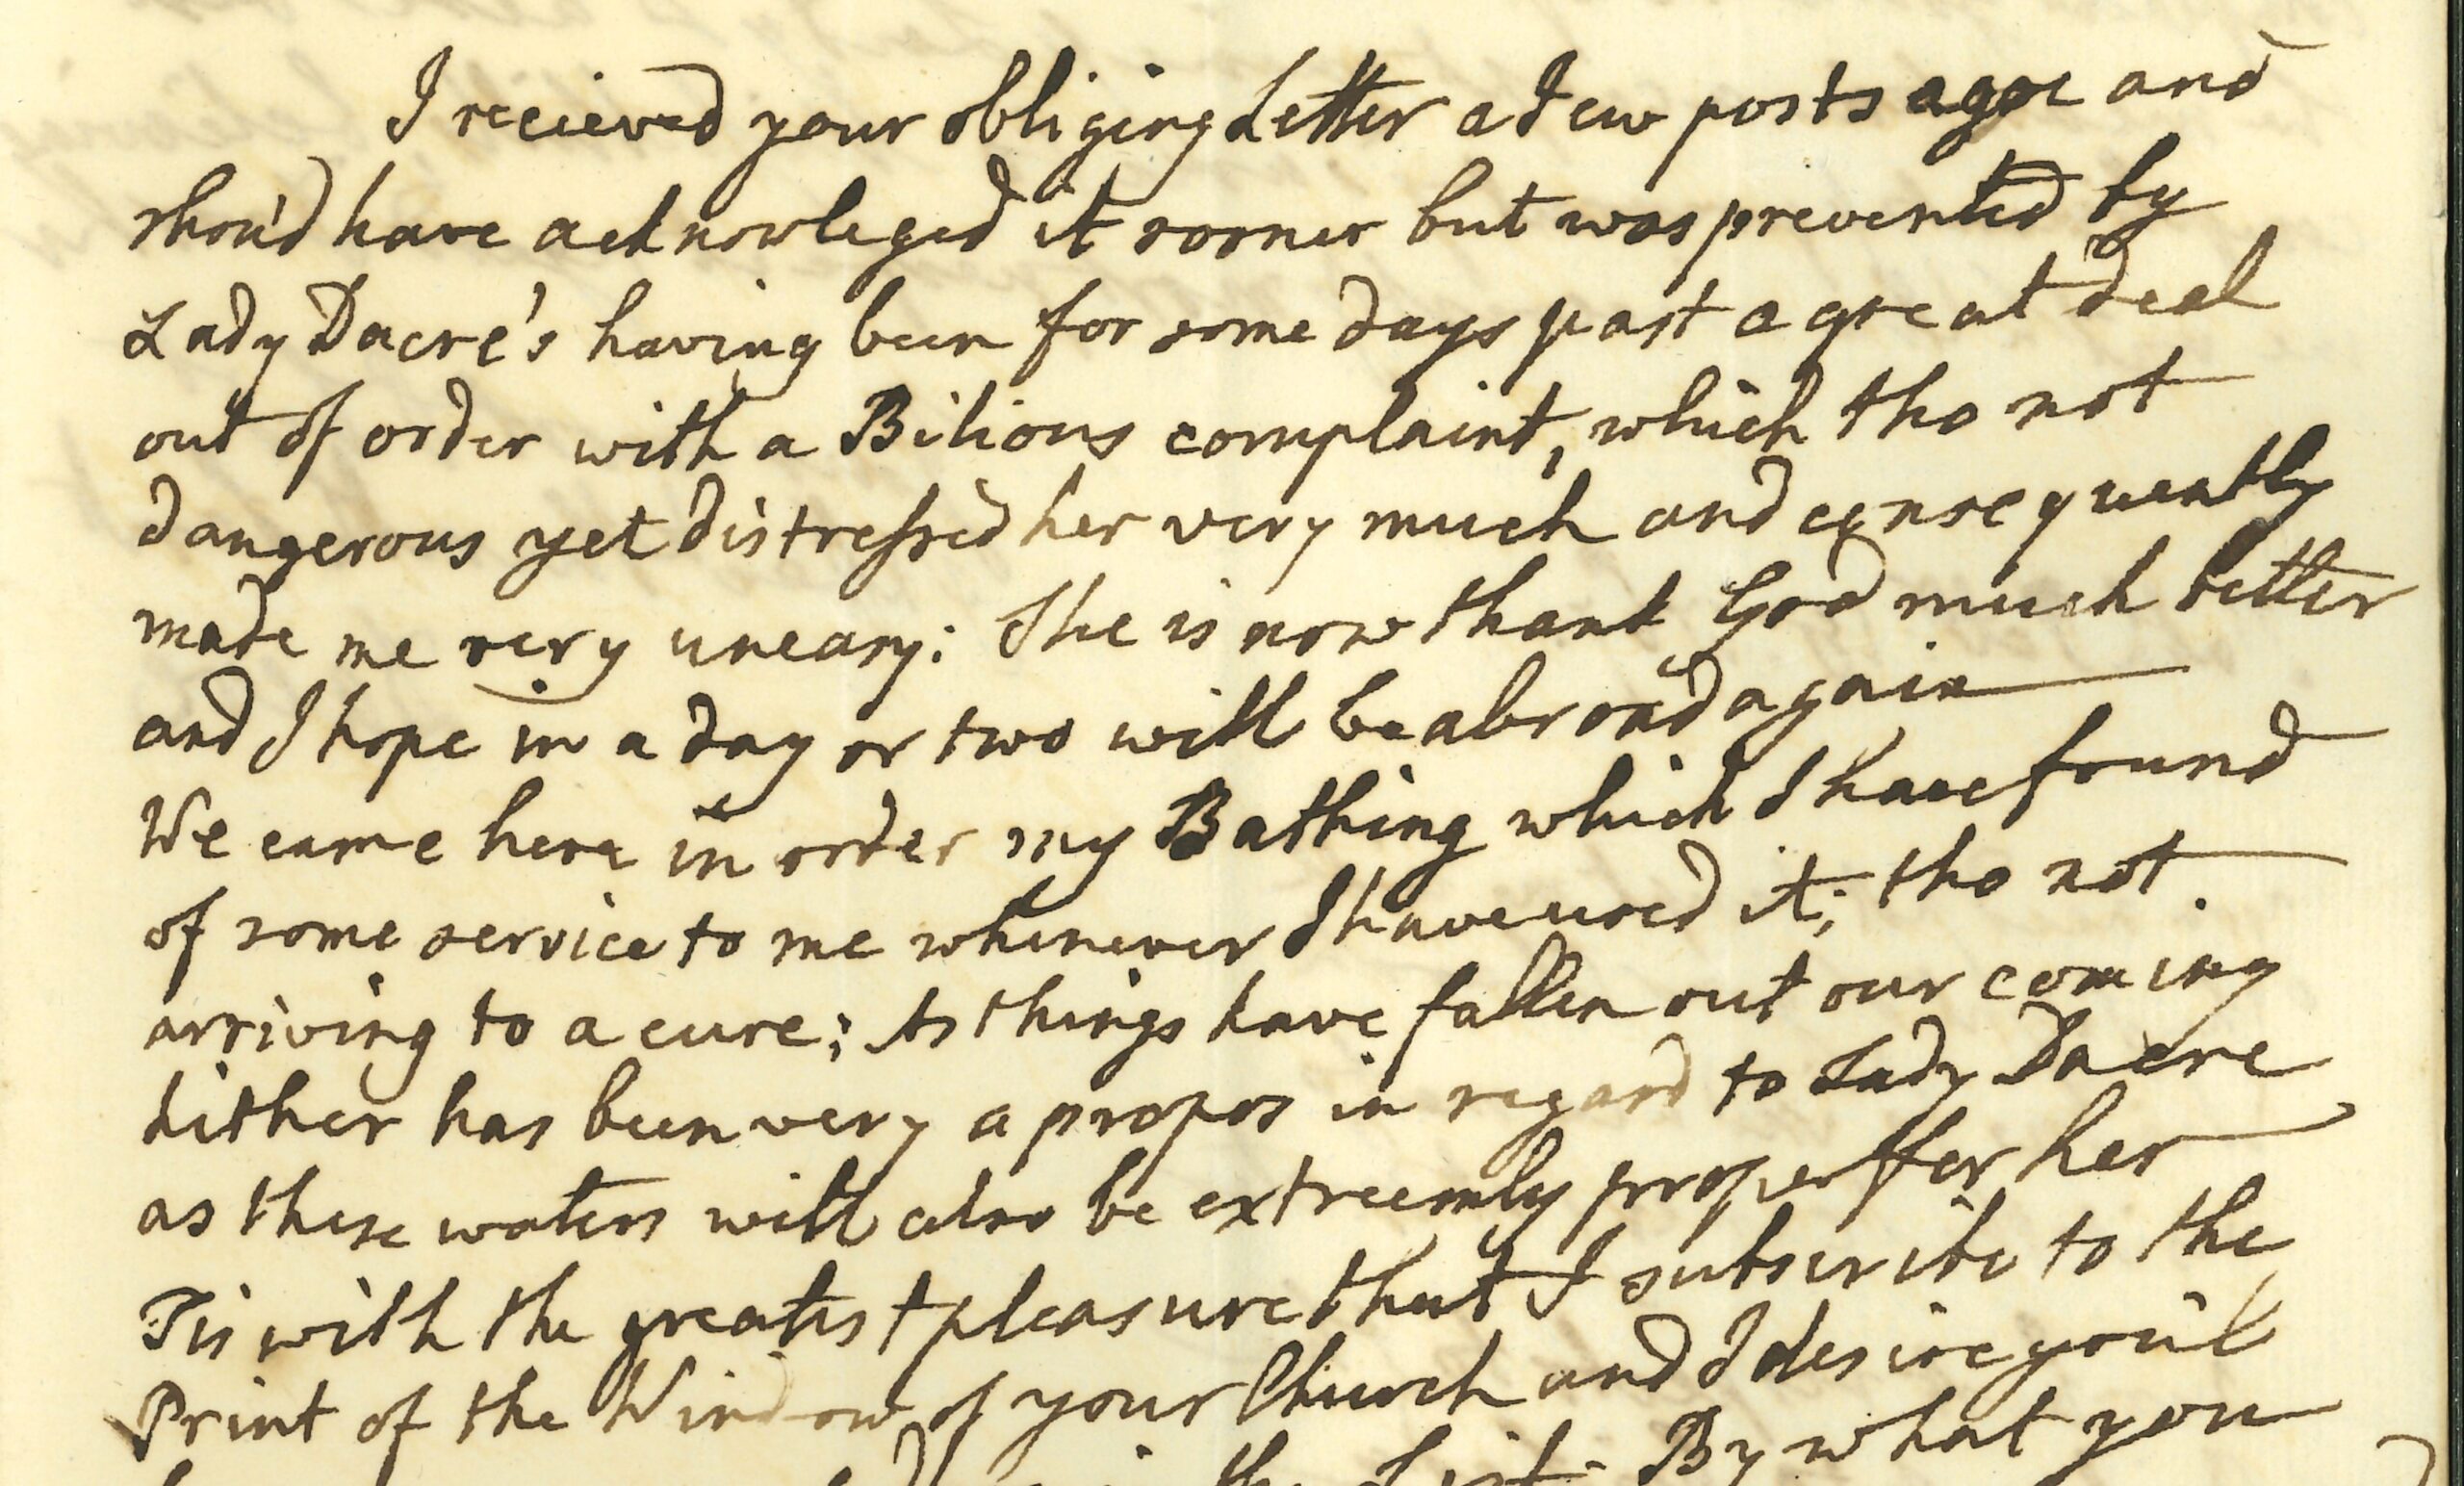 I recieved your obliging Letter a few posts agoe and
shou'd have acknowleged it sooner but was prevented by
Lady Dacre's having been for some days past a great deal
out of order with a Bilious complaint, which tho not
dangerous yet distressed her very much and consequently
made me very uneasy: She is now thank God much better
and I hope in a day or two will be abroad again
We came here in order my Bathing which I have found
of some service to me whenever I have used it; tho not
arriving to a cure; As things have fallen out our coming
hither has been very a propos in regard to Lady Dacre
as these waters will also be extreemly proper for her
Tis with the greatest pleasure that I subscribe to the
Print of the Window of your Church and I desire you'l
in the List. By what you